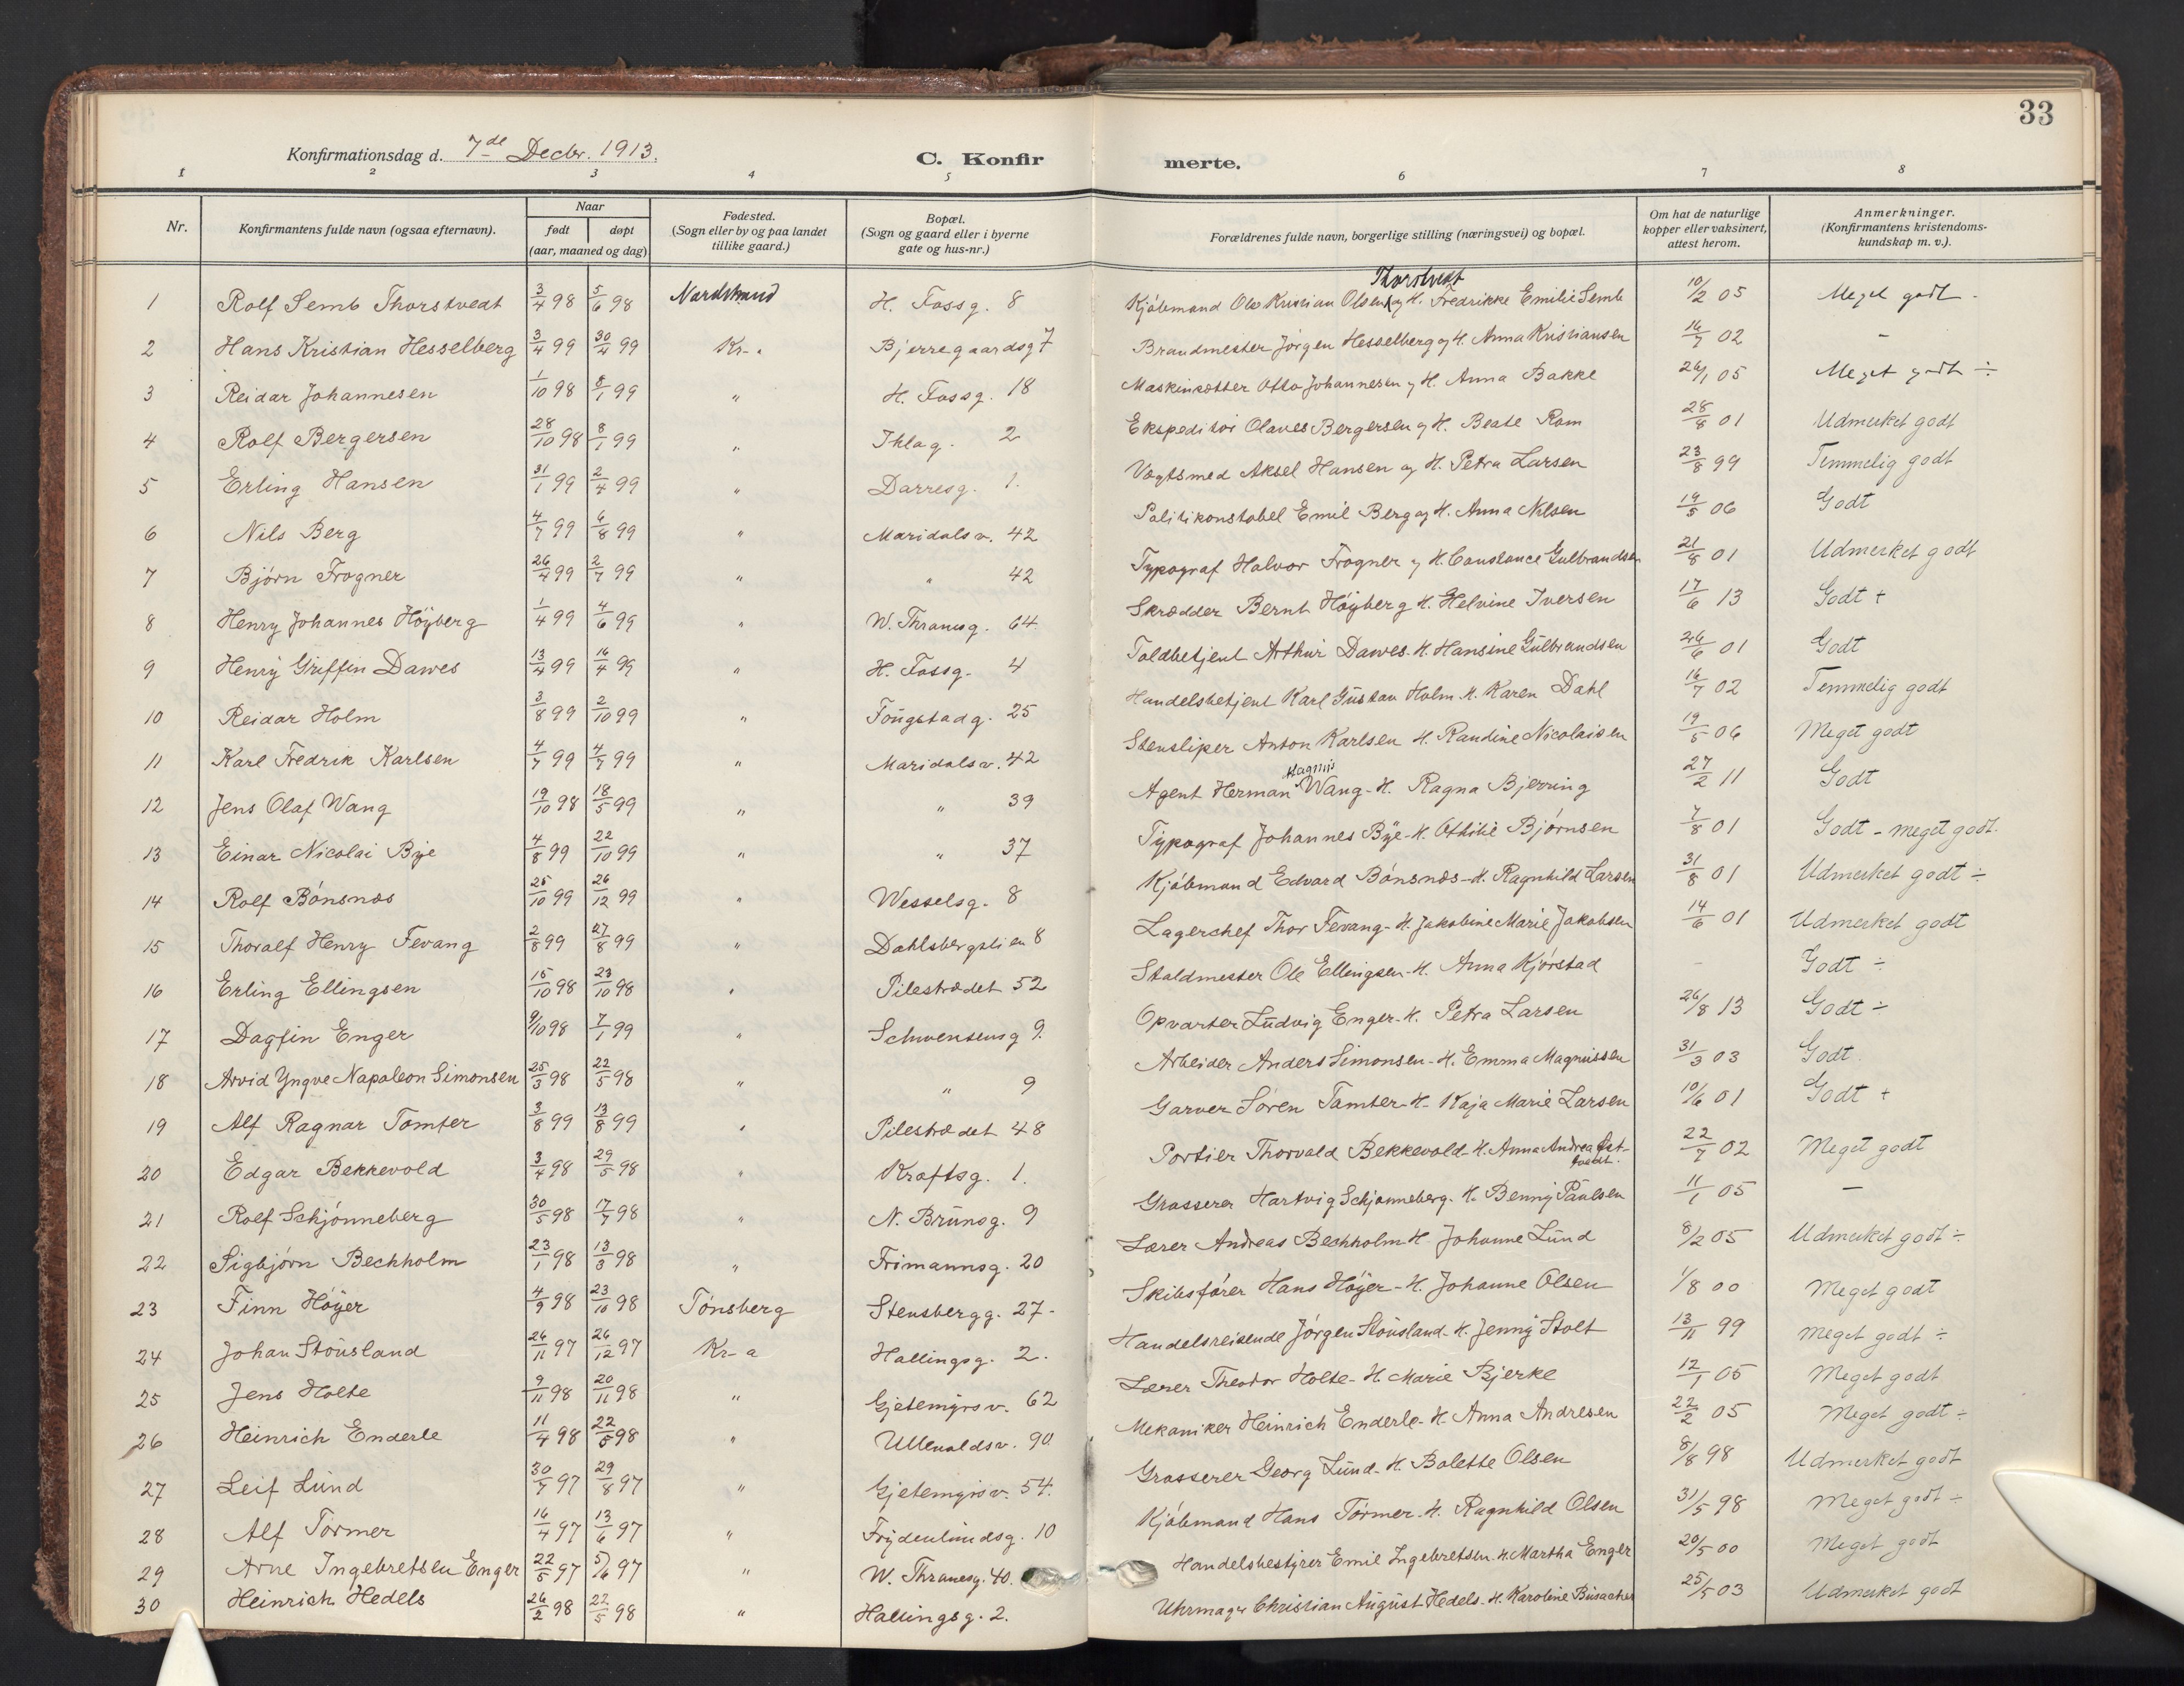 33
Konfirmationsdag d. 7de Decbr. 1913.
C. Konfirmerte.
1 2 3 4 5 6 7 8
Nr.
Konfirmantens fulde navn (ogsaa efternavn).
Naar
født døpt
(aar, maaned og dag)
Fødested.
(Sogn eller by og paa landet
tillike gaard.)
Bopæl.
(Sogn og gaard eller i byerne
gate og hus-nr.)
Forældrenes fulde navn, borgerlige stilling (næringsvei) og bopæl.
Om hat de naturlige
kopper eller vaksinert,
attest herom.
Anmerkninger.
(Konfirmantens kristendoms-
kundskap m. v.).
Thorstvedt
1 Rolf Semb Thorstvedt 3/4 98 5/6 98 Nordstrand H. Fossg. 8 Kjøbmand Ole Kristian Olsen og H. Fredrikke Emilie Semb 10/2 05 Meget godt -
2 Hans Kristian Hesselberg 3/4 99 30/4 99 Kr-a Bjerregaardsg 7 Brandmester Jørgen Hesselberg og H. Anna Kristiansen 16/7 02 -
3 Reidar Johannesen 1/10 98 8/1 99 " H. Fossg. 18 Otto Johannesen og H. Anna Bakke 26/1 05 Meget godt ÷
4 Rolf Bergersen 28/10 98 8/1 99 " Ihleg. 2 Ekspeditør Olaves Bergersen og H. Beate Rom 28/8 01 Udmerket godt
5 Erling Hansen 31/1 99 2/4 99 " Darresg. 1. Vogtsmed Aksel Hansen og H. Petra Larsen 23/8 99 Temmelig godt
6 Nils Berg 4/7 99 6/8 99 " Maridalsv. 42 Politikonstabel Emil Berg og H. Anna Nilsen 19/5 06 Godt
7 Bjørn Frogner 26/4 99 2/7 99 " " 42 Typograf Halvor Frogner og H. Constance Gulbrandsen 21/8 01 Udmerket godt
8 Henry Johannes Höyberg 1/4 99 4/6 99 " W. Thranesg. 64 Skrædder Bernt Höyberg H. Helvine Iversen 17/6 13 Godt +
9 Henry Griffin Dawes 13/4 99 16/4 99 " H. Fossg. 4 Toldbetjent Arthur Dawes - H. Hansine Gulbrandsen 26/6 01 Godt
10 Reidar Holm 3/8 99 2/10 99 " Fougstadg. 25 Handelsbetjent Karl Gustav Holm - H. Karen Dahl 16/7 02 Temmelig godt
11 Karl Fredrik Karlsen 4/7 99 4/7 99 " Maridalsv. 42 Stensliper Anton Karlsen H. Randine Nicolaisen 19/5 06 Meget godt
Magnus
12 Jens Olaf Wang 19/10 98 18/5 99 " " 39 Agent Herman Wang - H. Ragna Bjerring 27/2 11 Godt
13 Einar Nicolai Bye 4/8 99 22/10 99 " " 37 Typograf Johannes Bye - H. Othilie Bjørnsen 7/8 01 Godt - meget godt.
14 Rolf Bönsnæs 25/10 99 26/12 99 " Wesselsg. 8 Kjøbmand Edvard Bönsnæs - H. Ragnhild Larsen 31/8 01 Udmerket godt ÷
15 Thoralf Henry Fevang 2/8 99 27/8 99 " Dahlsbergstien 8 Lagerchef Thor Fevang - H. Jakobine Marie Jakobsen 14/6 01 Udmerket godt
16 Erling Ellingsen 15/10 98 23/10 98 " Pilestrædet 52 Staldmester Ole Ellingsen - H. Anna Kjørstad - Godt ÷
17 Dagfin Enger 9/10 98 7/1 99 " Schwensensg 9. Opvarter Ludvig Enger - H. Petra Larsen 26/8 13 Godt ÷
18 Arvid Yngve Napoleon Simonsen 25/3 98 22/5 98 " " 9 Arbeider Anders Simonsen - H. Emma Magnussen 31/3 03 Godt
19 Alf Ragnar Tomter 3/8 99 13/8 99 " Pilestrædet 48 Garver Søren Tamter - H. Kaja Marie Larsen 10/6 01 Godt +
20 Edgar Bekkevold 3/4 98 29/5 98 " Kraftsg. 1. Portier Thorvald Bekkevold - H. Anna Andrea
21 Rolf Schjønneberg 30/5 98 17/7 98 " N. Brunsg. 9 Grosserer Hartvig Schjønneberg - H. Benny Paulsen 11/1 05 -
22/7 02 Meget godt
22 Sigbjørn Bechholm 23/1 98 13/3 98 " Frimannsg. 20 Lærer Andreas Bechholm - H. Johanne Lund 8/2 05 Udmerket godt ÷
23 Finn Höyer 4/9 98 23/10 98 Tönsberg Stensbergg. 27 - Skibsfører Hans Höyer - H. Johanne Olsen 1/8 00 Meget godt
24 Johan Stousland 26/11 97 26/12 97 Kr-a Hallingsg. 2. Handelsreisende Jørgen Stousland - H. Jenny Stolt 13/11 99 Meget godt ÷
25 Jens Holte 9/11 98 20/11 98 " Gjetemyrsv. 62 Lærer Theodor Holte - H. Marie Bjerke 12/1 05 Meget godt
26 Heinrich Enderle 11/4 98 22/5 98 " Ullevoldsv. 90 Mekaniker Heinrich Enderle - H. Anna Andresen 22/2 05 Meget godt ÷
27 Leif Lund 30/7 97 29/8 97 " Gjetemyrsv. 54. Grosserer Georg Lund - H. Bolette Olsen 8/8 98 Udmerket godt
28 Alf Tormer 16/4 97 13/6 97 " Frydenlundsg. 10 Kjøbmand Hans Törmer - H. Ragnhild Olsen 31/5 98 Meget godt ÷
29 Arne Ingebretsen Enger 22/5 97 5/6 97 " W. Thranesg. 40. Handelsbestyrer Emil Ingebretsen - H. Martha Enger 20/5 00 Meget godt
30 Heinrich Hedels 26/2 98 22/5 98 " Hallingsg. 2. Uhrmager Christian August Hedels - H. Karoline Busacher 25/5 03 Udmerket godt